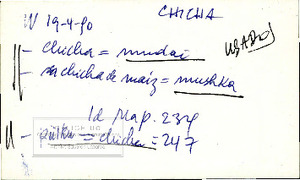 CHICHA
19-4-90
USADO
- chicha = mudai
- chicha de maiz = mushka
Id Map. 234
- pulku = chicha = 247